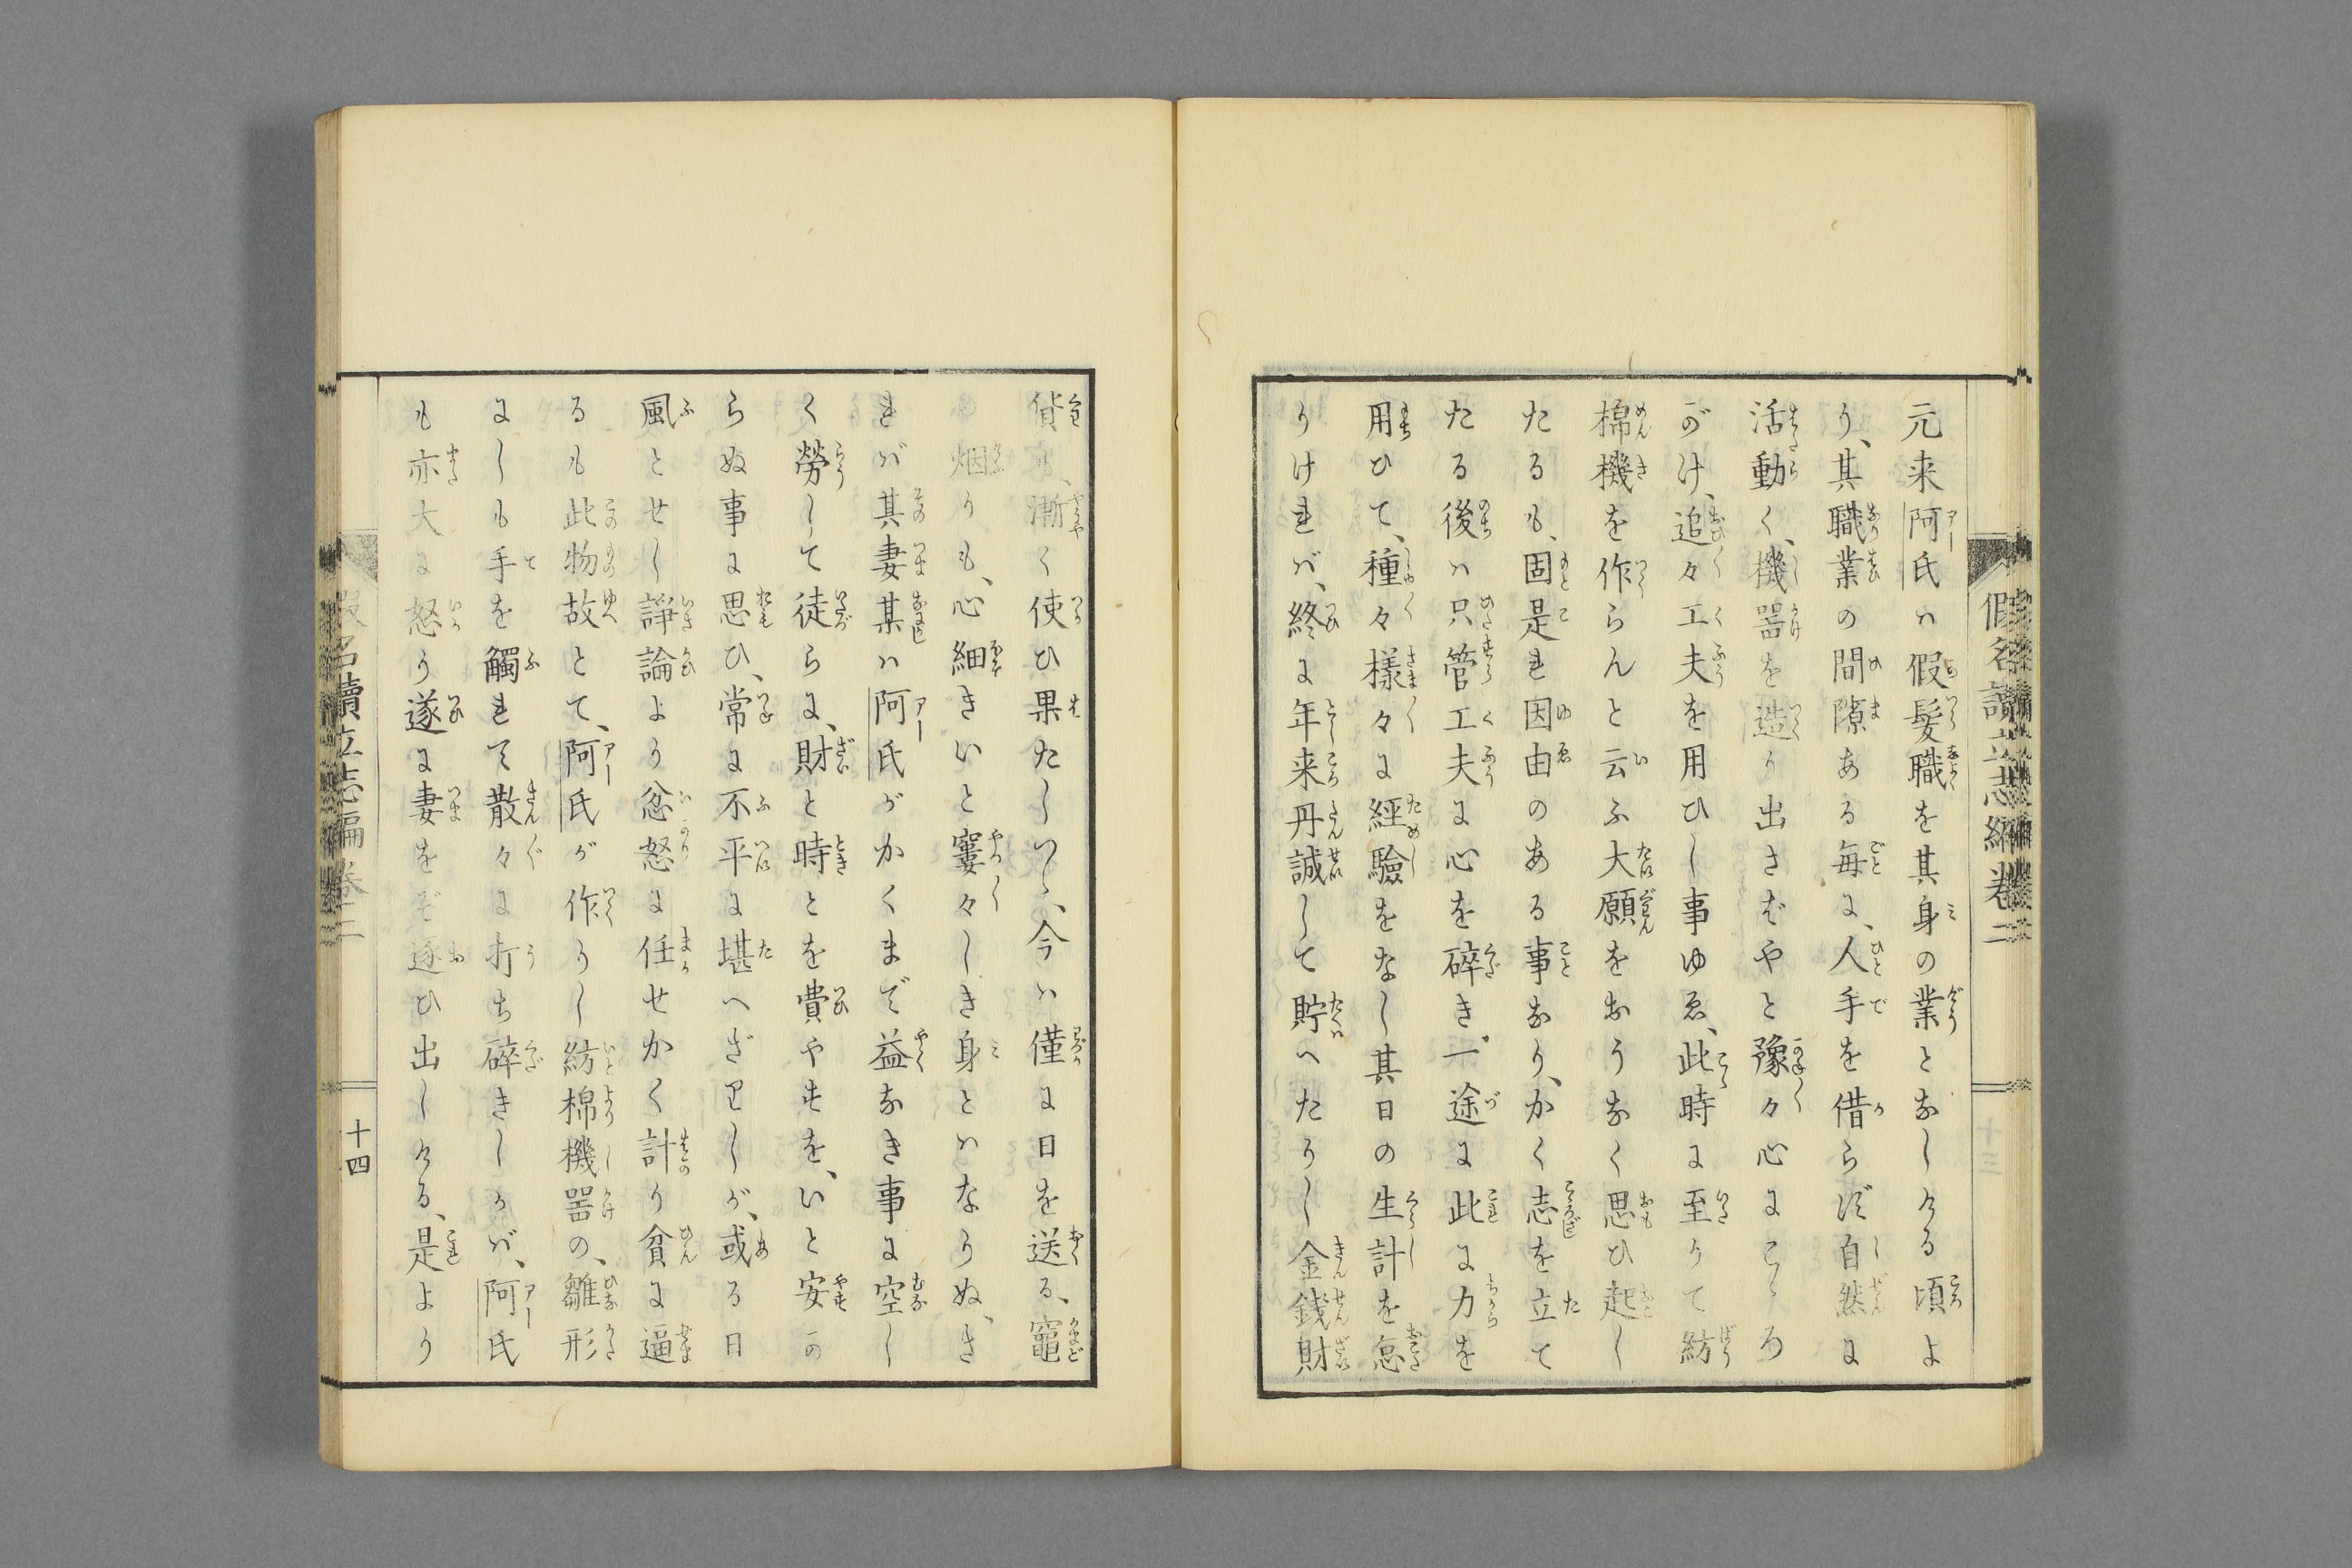 假名讀立志編卷二
十三
元来阿氏ハ假髪職を其身の業となしける頃よ
り、其職業の間隙ある毎に、人手を借らず自然に
活動く、機噐を造り出さばやと豫々心にこゝろ
がけ、追々工夫を用ひし事ゆゑ、此時に至りて紡
棉機を作らんと云ふ大願をおうなく思ひ起し
たるも、固是れ因由のある事なり、かく志を立て
たる後ハ只管工夫に心を碎き一途に此に力を
用ひて、種々樣々に經驗をなし其日の生計を怠
りけれバ、終に年来丹誠して貯へたりし金錢財
貨も、漸く使ひ果たしつゝ、今ハ僅に日を送る、竈
の烟りも、心細きいと窶々しき身とハなりぬ、さ
れバ其妻某ハ阿氏がかくまで益なき事に空し
く勞して徒らに、財と時とを費やすを、いと安か
らぬ事に思ひ、常に不平に堪へざりしが、或る日
風とせし諍論より忿怒に任せかく計り貧に逼
るも此物故とて、阿氏が作りし紡棉機噐の、雛形
にしも手を觸れて散々に打ち碎きしかバ、阿氏
も亦大に怒り遂に妻をぞ逐ひ出しける、是より
假名讀立志編卷二
十四